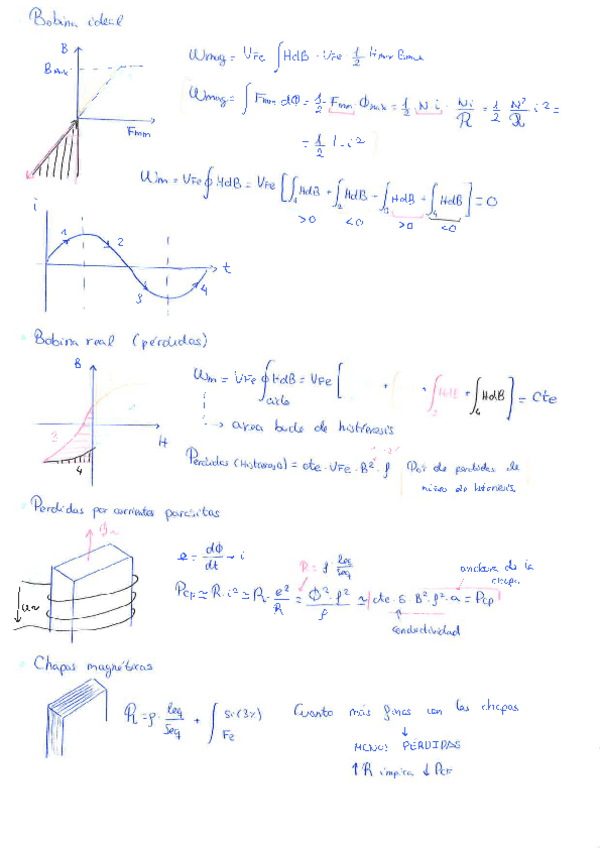 Bobina ideal
B
Bmax
Fmm
Wmag = VFe ∫HdB = VFe · 1/2 Hmax Bmax
Wmag = ∫Fmm dΦ = 1/2 · Fmm · Φmax = 1/2 · N i · Ni/R = 1/2 N²/R · i² =
= 1/2 L · i²
Wm = VFe ∮HdB = VFe [∫₁HdB + ∫₂HdB + ∫₃HdB + ∫₄HdB] = 0
>0 <0 >0 <0
i
1 2 3 4
t
Bobina real (pérdidas)
B
H
3
4
Wm = VFe ∮HdB = VFe [ + + ∫₃HdB + ∫₄HdB] = Cte
ciclo
→ area bucle de histeresis
Perdidas (Histeresis) = cte · VFe · B² · f
Pot de perdidas de
Perdidas por corrientes parásitas
e = dΦ/dt → i
R = ρ · leq/Seq
anchura de la
chapa
Pcp ≃ R · i² ≃ R · e²/R = Φ² · f²/ρ ≃ cte · σ · B² · f² · a = Pcp
conductividad
Chapas magnéticas
R = ρ · leq/Seq +
Si (3%)
Fe
Cuanto más finas son las chapas
↓
MENOS PÉRDIDAS
↑R implica ↓Pcp